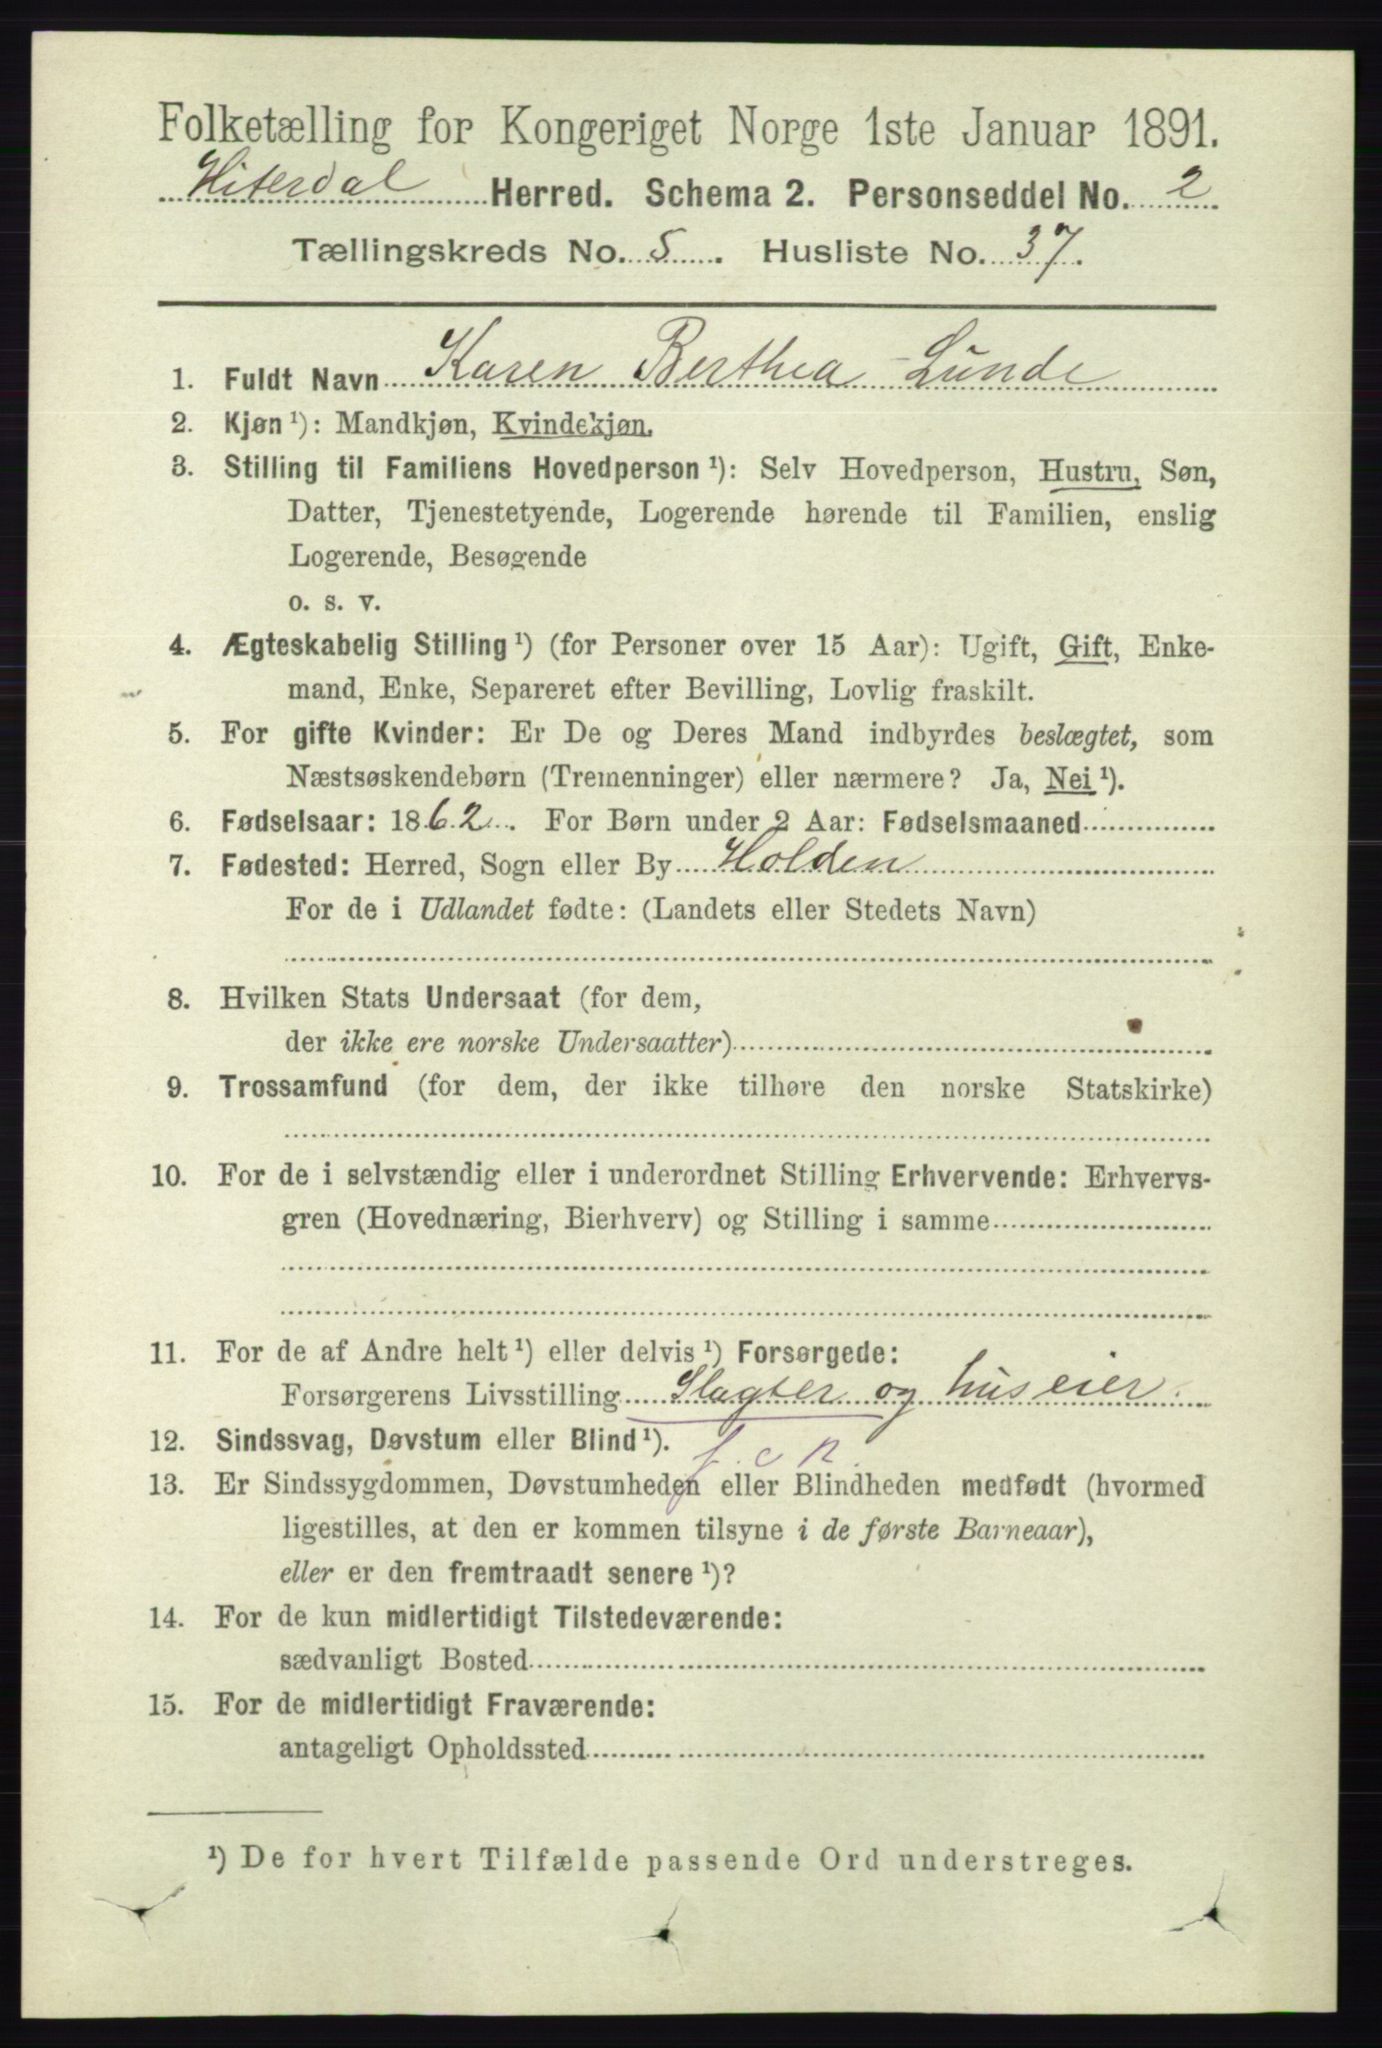 Folketælling for Kongeriget Norge 1ste Januar 1891.
Hiterdal Herred. Schema 2. Personseddel No. 2
Tællingskreds No. 5. Husliste No. 37.
1. Fuldt Navn Karen Berthea Lunde
2. Kjøn ¹): Mandkjøn, Kvindekjøn.
3. Stilling til Familiens Hovedperson ¹): Selv Hovedperson, Hustru, Søn,
Datter, Tjenestetyende, Logerende hørende til Familien, enslig
Logerende, Besøgende
o. s. v.
4. Ægteskabelig Stilling ¹) (for Personer over 15 Aar): Ugift, Gift, Enke-
mand, Enke, Separeret efter Bevilling, Lovlig fraskilt.
5. For gifte Kvinder: Er De og Deres Mand indbyrdes beslægtet, som
Næstsøskendebørn (Tremenninger) eller nærmere? Ja, Nei ¹).
6. Fødselsaar: 1862. For Børn under 2 Aar: Fødselsmaaned
7. Fødested: Herred, Sogn eller By Holden
For de i Udlandet fødte: (Landets eller Stedets Navn)
8. Hvilken Stats Undersaat (for dem,
der ikke ere norske Undersaatter)
9. Trossamfund (for dem, der ikke tilhøre den norske Statskirke)
10. For de i selvstændig eller i underordnet Stilling Erhvervende: Erhvervs-
gren (Hovednæring, Bierhverv) og Stilling i samme
11. For de af Andre helt ¹) eller delvis ¹) Forsørgede:
Forsørgerens Livsstilling Slagter og huseier.
12. Sindssvag, Døvstum eller Blind ¹).
13. Er Sindssygdommen, Døvstumheden eller Blindheden medfødt (hvormed
ligestilles, at den er kommen tilsyne i de første Barneaar),
eller er den fremtraadt senere ¹)?
14. For de kun midlertidigt Tilstedeværende:
sædvanligt Bosted
15. For de midlertidigt Fraværende:
antageligt Opholdssted
¹) De for hvert Tilfælde passende Ord understreges.